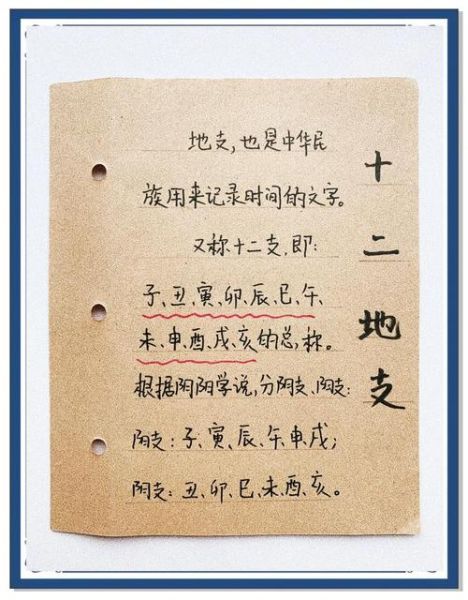 十二地支
地支，也是中华民
族用来记录时间的文字。
又称十二支，即：
子、丑、寅、卯、辰、巳、午、
未、申、酉、戌、亥的总称。
根据阴阳学说，分阴支、阳支：
阳支：子、寅、辰、午、申、戌；
阴支：丑、卯、巳、未、酉、亥。